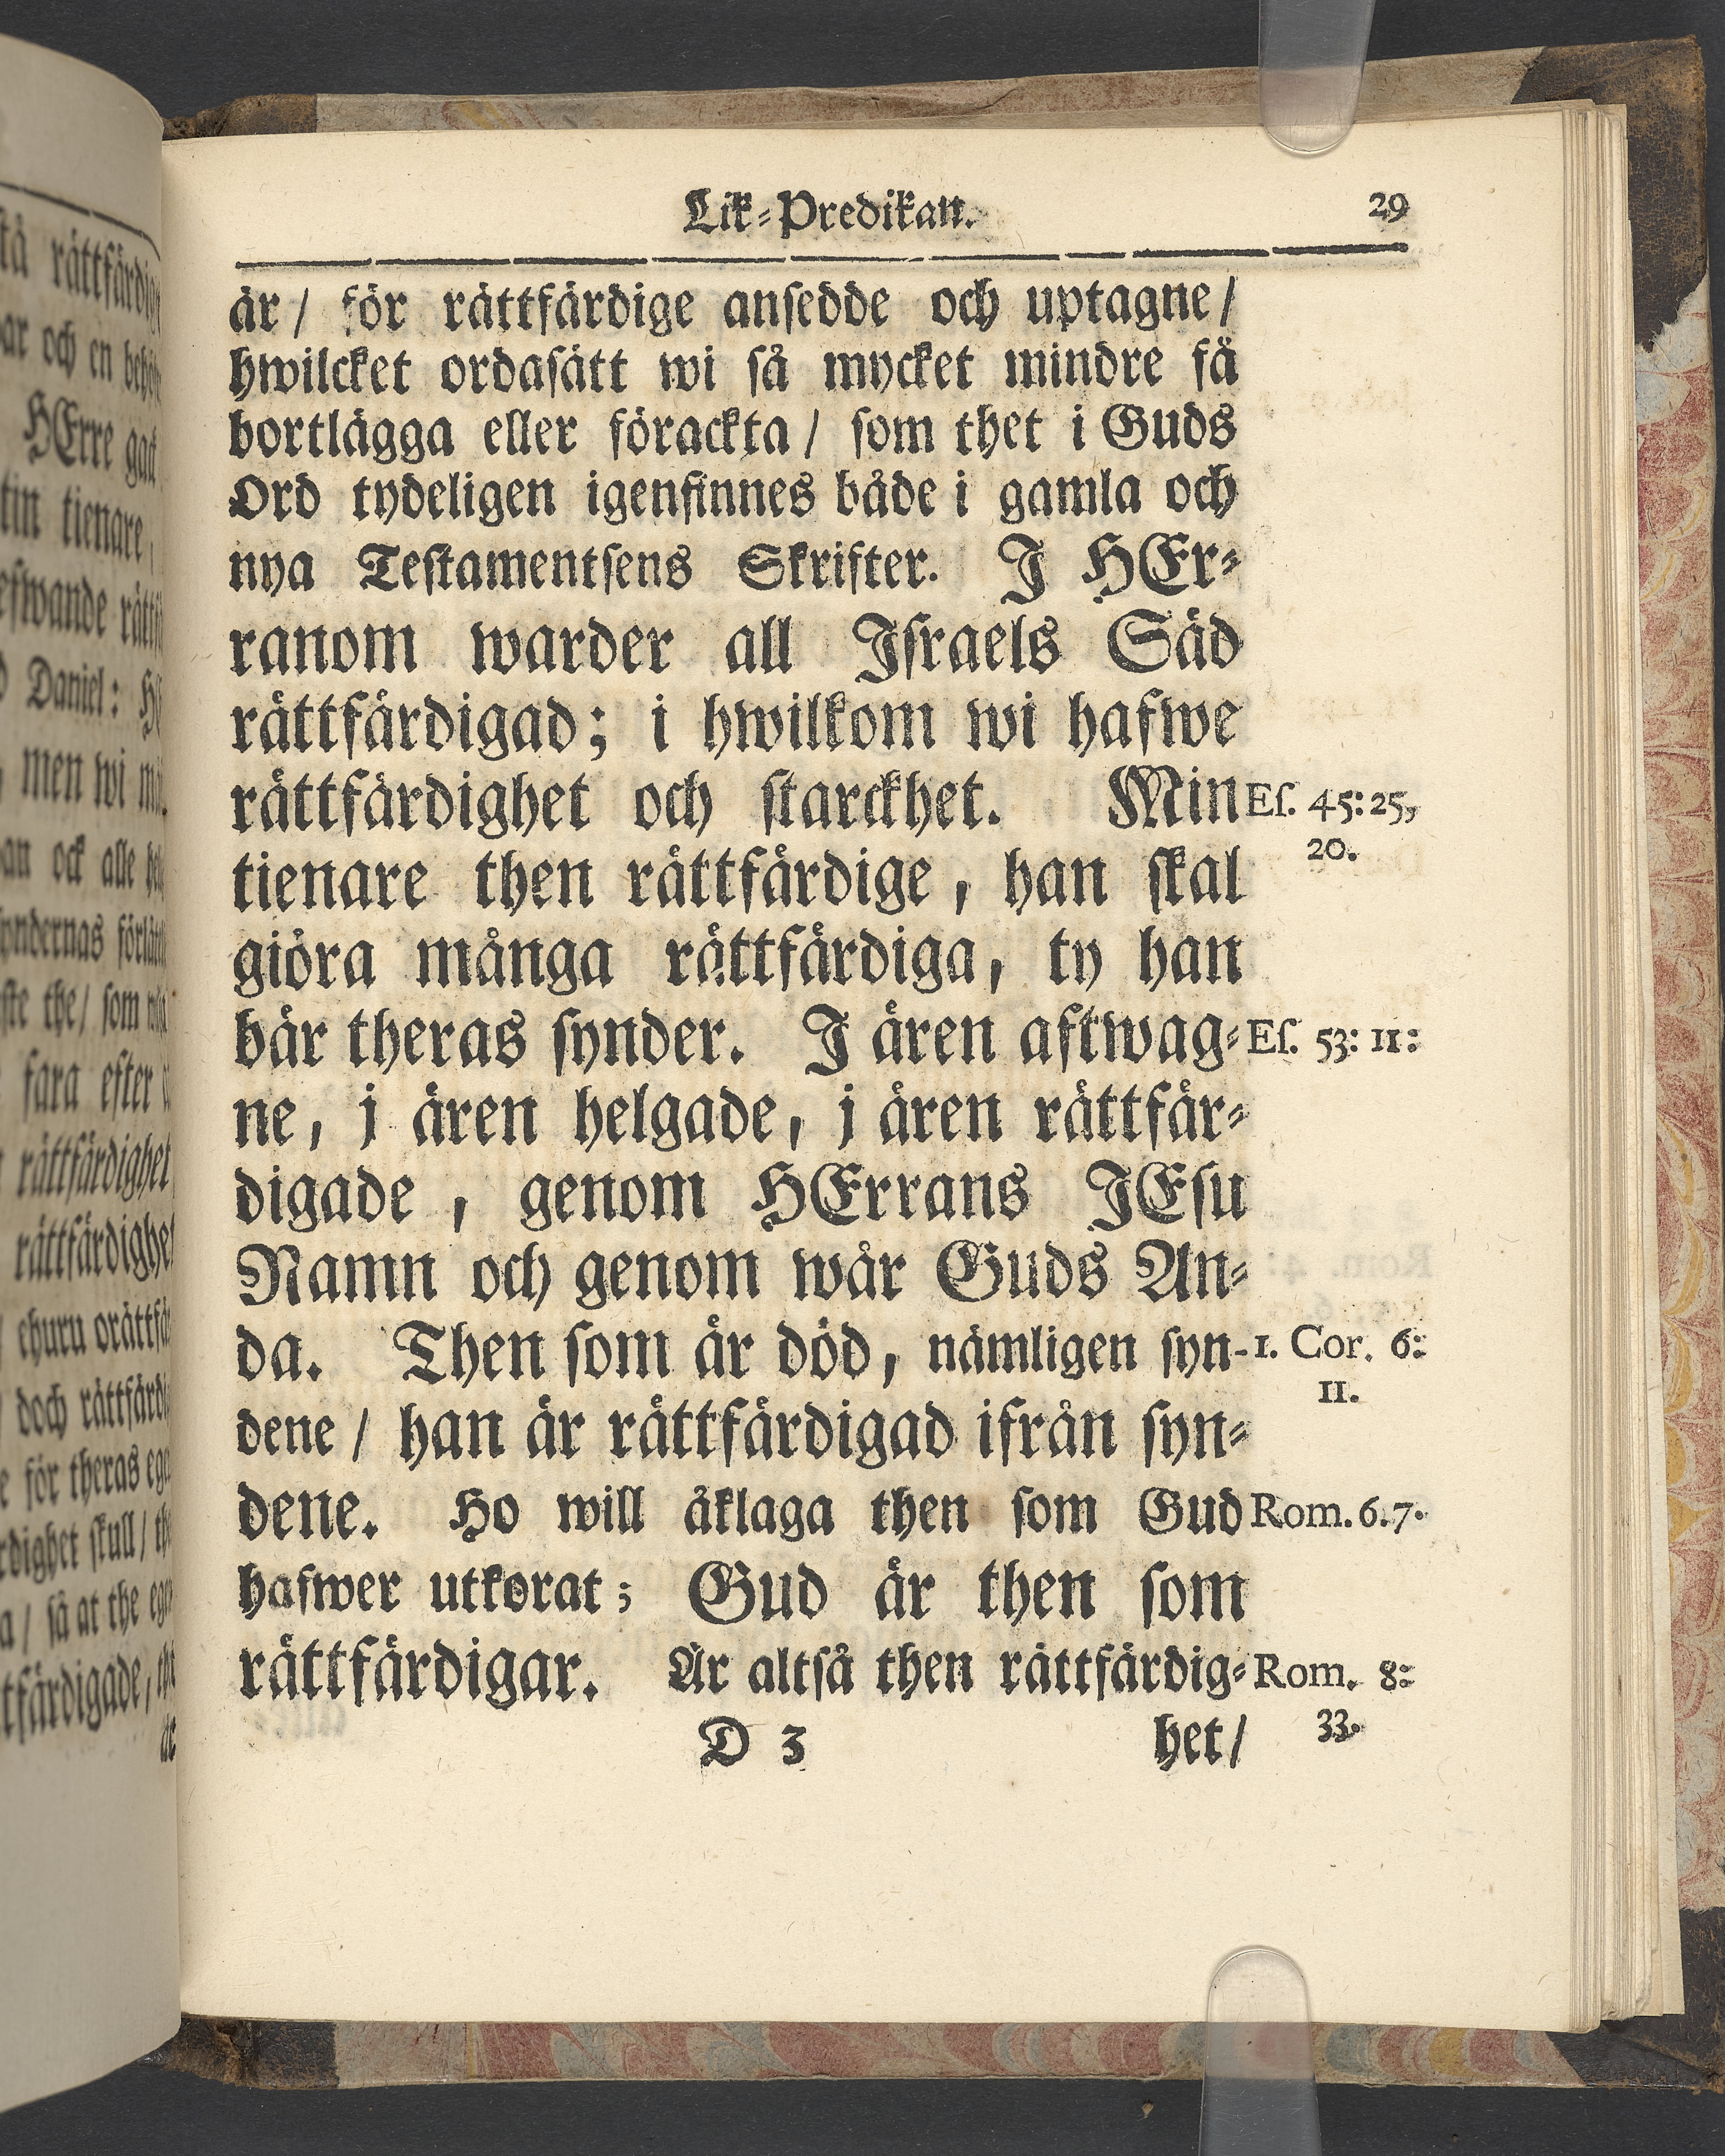 Lik-Predikan.
29
är/ för rättfärdige ansedde och uptagne/
hwilcket ordasätt wi så mycket mindre få
bortlägga eller förackta/ som thet i Guds
Ord tydeligen igenfinnes både i gamla och
nya Testamentsens Skrifter. J HEr-
ranom warder all Jsraels Säd
rättfärdigad; i hwilkom wi hafwe
rättfärdighet och starckhet. Min
Es. 45:25,
20.
tienare then rättfärdige, han skal
giöra många rättfärdiga, ty han
bär theras synder. J ären aftwag-
Es. 53: 11:
ne, j ären helgade, j ären rättfär-
digade, genom HErrans JEsu
Namn och genom wår Guds An-
da. Then som är död, nämligen syn-
1. Cor. 6:
11.
dene/ han är rättfärdigad ifrån syn-
dene. Ho will åklaga then som Gud
Rom. 6.7.
hafwer utkorat; Gud är then som
rättfärdigar. Är altså then rättfärdig-
Rom. 8:
33.
D 3
het/